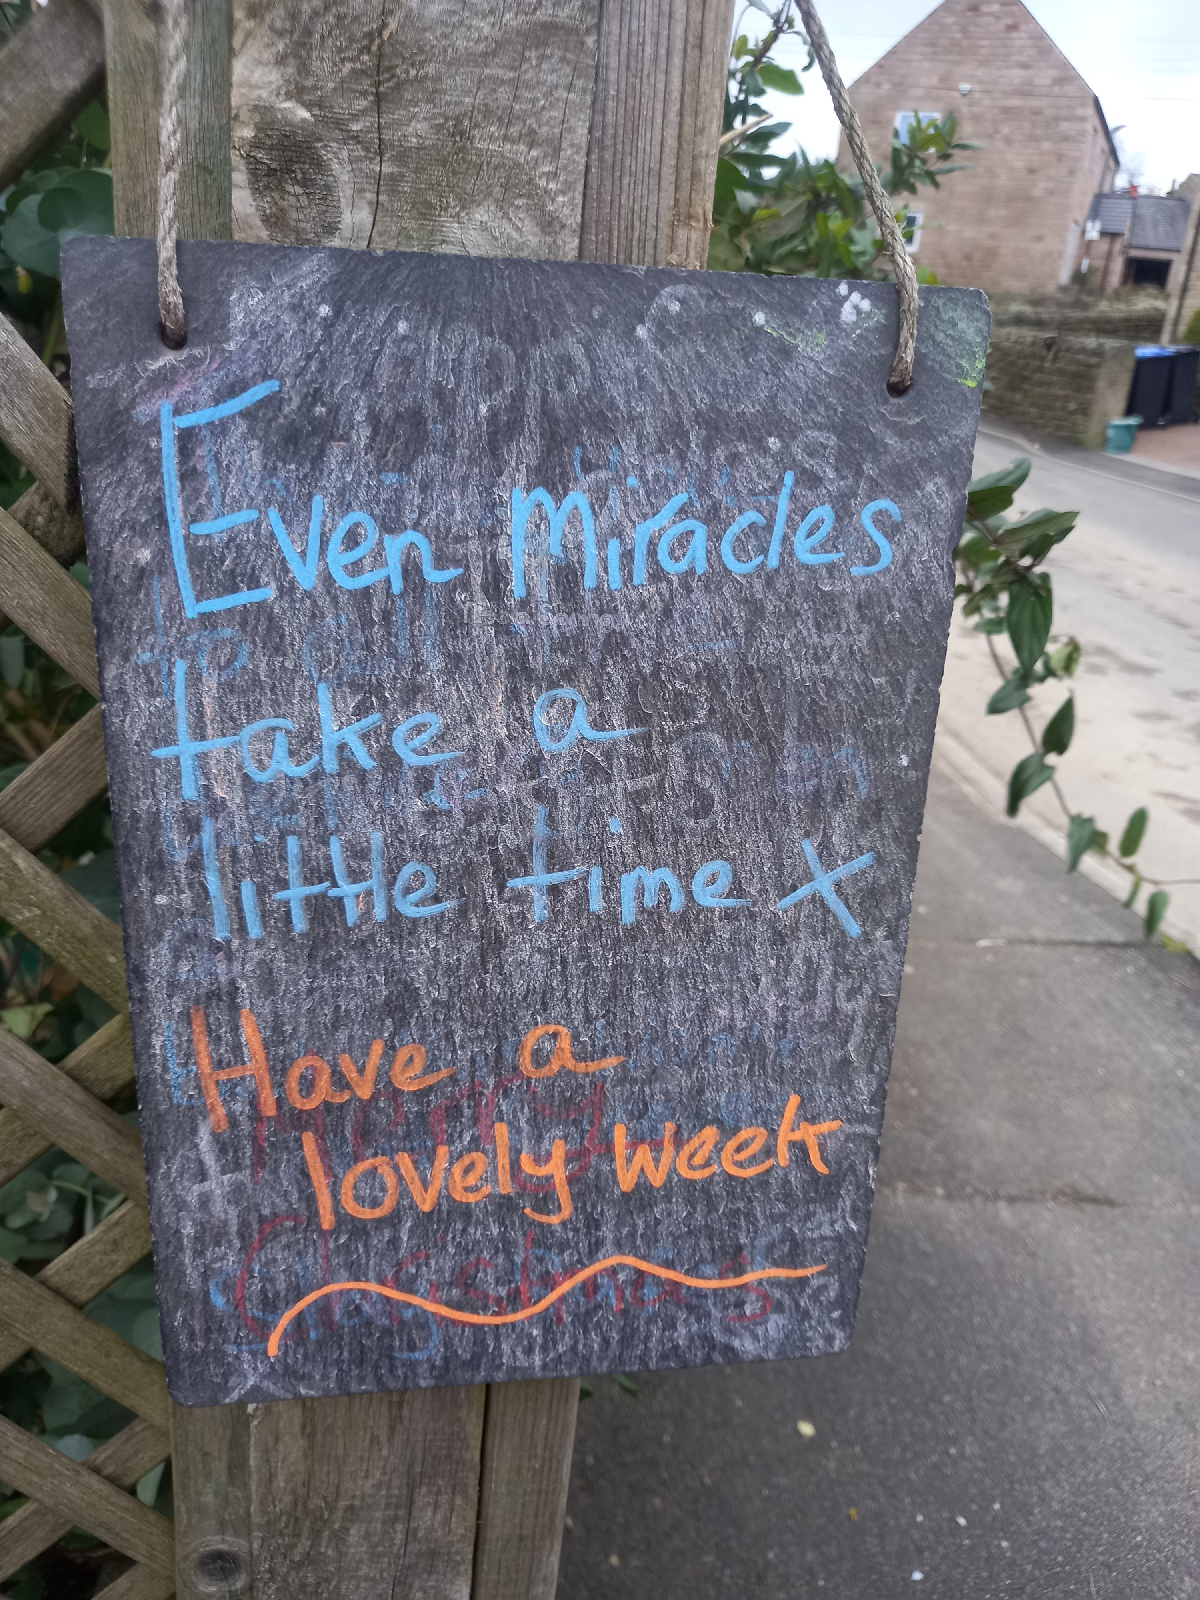 Even miracles
take a
little time x
Have a
lovely week
Merry
Christmas